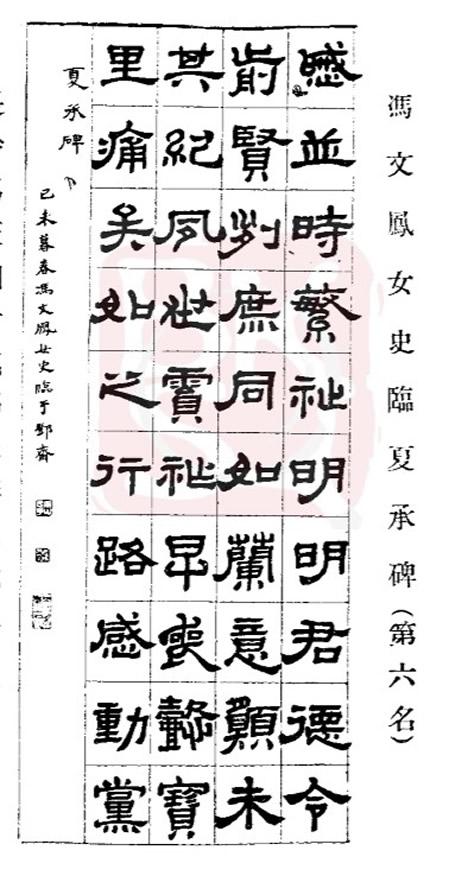 馮文鳳女史臨夏承碑(第六名)
慼並時繁祉明明君德令
前賢列庶同如蘭意顛未
其紀夙世賁祉早喪懿寶
里痛矣如之行路感動黨
夏承碑
己未暮春馮文鳳女史臨于齋